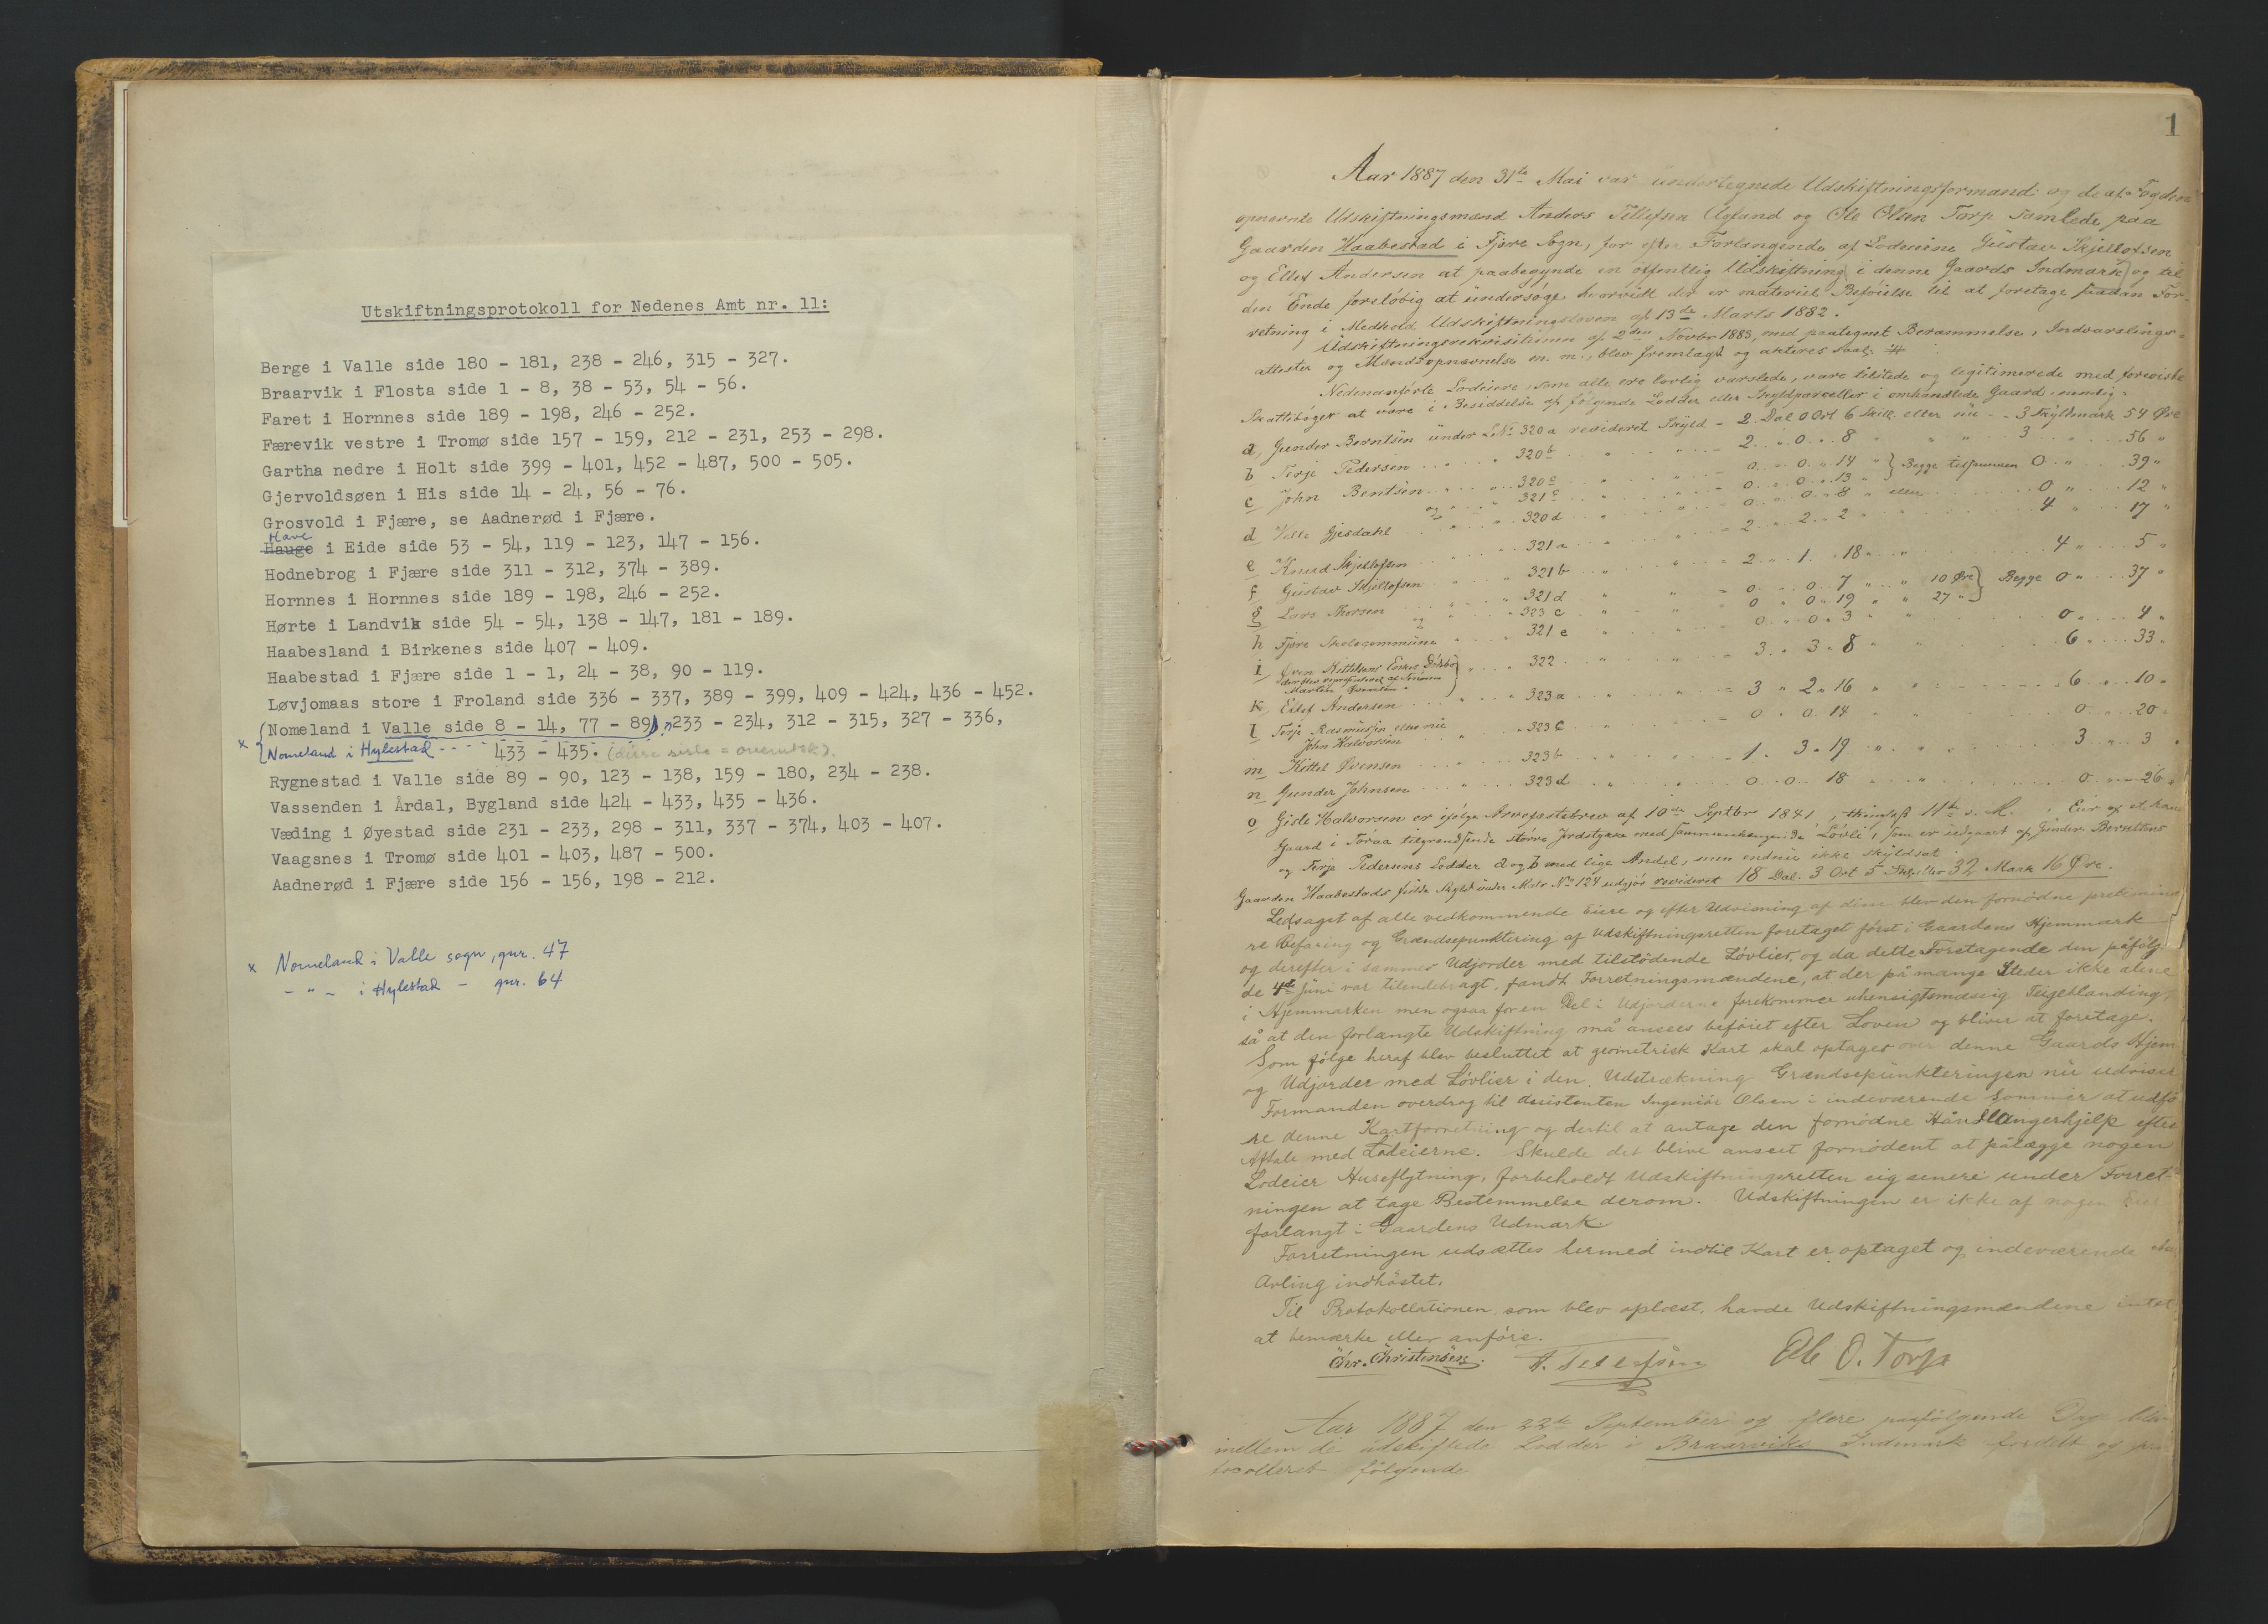 Utskiftningsprotokoll for Nedenes Amt nr. 11:
Berge i Valle side 180 - 181, 238 - 246, 315 - 327.
Braarvik i Flosta side 1 - 8, 38 - 53, 54 - 56.
Faret i Hornnes side 189 - 198, 246 - 252.
Færevik vestre i Tromø side 157 - 159, 212 - 231, 253 - 298.
Gartha nedre i Holt side 399 - 401, 452 - 487, 500 - 505.
Gjervoldsøen i His side 14 - 24, 56 - 76.
Grosvold i Fjære, se Aadnerød i Fjære.
Have
Hauge i Eide side 53 - 54, 119 - 123, 147 - 156.
Hodnebrog i Fjære side 311 - 312, 374 - 389.
Hornnes i Hornnes side 189 - 198, 246 - 252.
Hørte i Landvik side 54 - 54, 138 - 147, 181 - 189.
Haabesland i Birkenes side 407 - 409.
Haabestad i Fjære side 1 - 1, 24 - 38, 90 - 119.
Løvjomaas store i Froland side 336 - 337, 389 - 399, 409 - 424, 436 - 452.
(Nomeland i Valle side 8 - 14, 77 - 89), 233 - 234, 312 - 315, 327 - 336,
x Nomeland i Hylestad - - - - 433 - 435. (disse siste =
Rygnestad i Valle side 89 - 90, 123 - 138, 159 - 180, 234 - 238.
Vassenden i Årdal, Bygland side 424 - 433, 435 - 436.
Væding i Øyestad side 231 - 233, 298 - 311, 337 - 374, 403 - 407.
Vaagsnes i Tromø side 401 - 403, 487 - 500.
Aadnerød i Fjære side 156 - 156, 198 - 212.
x Nomeland i Valle sogn, gnr. 47
- " - i Hylestad - gnr. 64
1
Aar 1887 den 31te Mai var undertegnede Udskiftningsformand og de af Fogden
opnævnte Udskiftningsmænd Anders Tellefsen Ugland og Ole Olsen Torp samlede paa
Gaarden Haabestad i Fjære Sogn, for efter Forlangende af Lodeierne Gustav Skjellofsen
og Ellef Andersen at paabegynde en offentlig Udskiftning i denne Gaards Indmark og til
den Ende foreløbig at undersøge hvorvidt der er materiel Beføielse til at foretage saadan For-
retning i Medhold Udskiftningsloven af 13de Marts 1882.
Udskiftningsrekvisitionen af 2den Novbr 1883, med paategnet Berammelse, Indvarslings-
attester og Mandsopnævnelse m. m., blev fremlagt og akteres
Nedenanførte Lodeiere, som alle ere lovlig varslede, vare tilstede og legitimerede med foreviste
Skattebøger at være i Besiddelse af følgende Lodder eller Skyldparceller i omhandlede Gaard, nemlig:
a, Gunder Berntsen under LNo 320a revideret Skyld = 2 Dal 0 Ort 6 Skill. eller nu - - 3 Skyldmark 54 Øre
b Terje Pedersen 320b 2 " 0 " 8 " 3 " 56 "
c John Bentsen 320c 0 " 0 " 14 " } Begge tilsammen 0 " 39 "
og 321c 0 " 0 " 13 "
d Gjesdahl 320d 0 " 0 " 8 " eller 0 " 12 "
e Knud Skjellofsen 321a 2 " 2 " 2 4 " 17 "
f Gustav Skjellofsen 321b 2 " 1 " 18 " 4 " 5 "
g Lars Thorsen 321d 0 " 0 " 7 " 10 Øre } Begge 0 " 37 "
og 323c 0 " 0 " 19 " 27 "
h Fjære Skolecommune 321e 0 " 0 " 3 " 0 " 4 "
i Øven Kittelsens Enkes Dødsbo 322 3 " 3 " 8 6 " 33 "
der blev repræsenteret af Sønnen
Martin Øvensen
k Ellef Andersen 323a 3 " 2 " 16 " 6 " 10 "
l Terje Rasmussen eller nu 323C 0 " 0 " 14 0 " 20 "
John Halvorsen
m Kittel Øvensen 323b 1 " 3 " 19 " 3 " 3
n Gunder Johnsen 323d 0 " 0 " 18 0 " 26 "
o Gisle Halvorsen er ifølge Arvefæstebrev af 10de Septbr 1841, thinglæst 11te s. M., Eier af et hans
Gaard i Føraa tilgrændsende større Jordstykke med sammenhængende Løvli, som er udgaaet af Gunder Berntsens
og Terje Pedersens Lodder a og b med lige Andel, men endnu ikke skyldsat
Gaarden Haabestads fulde Skyld under Matr No 124 udgjør revideret 18 Dal. 3 Ort 5 Sk. eller 32 Mark 16 Øre.
Ledsaget af alle vedkommende Eiere og efter Udvisning af disse blev den fornødne prelimina-
re Befaring og Grændsepunktering af Udskiftningsretten foretaget først i Gaardens Hjemmark
og derefter i sammes Udjorder med tilstødende Løvlier, og da dette Foretagende den påfølg-
de 4de Juni var tilendebragt, fandt Forretningsmændene, at der på mange Steder ikke alene
i Hjemmarken men ogsaa for en Del i Udjorderne forekommer uhensigtsmæssig Teigeblanding,
så at den forlangte Udskiftning må ansees beføiet efter Loven og bliver at foretage.
Som følge heraf blev besluttet at geometrisk Kart skal optages over denne Gaards Hjem
og Udjorder med Løvlier i den Udstrækning Grændsepunkteringen nu udviser
Formanden overdrog til Assistenten Ingeniør Olsen i indeværende Sommer at udfø-
re denne Kartforretning og dertil at antage den fornødne Håndlangerhjelp efter
Aftale med Lodeierne. Skulde det blive anseet fornødent at pålægge nogen
Lodeier Huseflytning, forbeholdt Udskiftningsretten sig senere under Forret-
ningen at tage Bestemmelse derom. Udskiftningen er ikke af nogen Eier
forlangt i Gaardens Udmark
Forretningen udsættes hermed indtil Kart er optaget og indeværende
Avling indhøstet.
Til Protokollationen, som blev oplæst, havde Udskiftningsmændene intet
at bemærke eller anføre.
Chr. Christensen. A. Tellefsen Ole O. Torp
Aar 1887 den 22de September og flere paafølgende Dage blev
mellem de udskiftede Lodder i Braarviks Indmark fordelt og pro-
tocolleret følgende